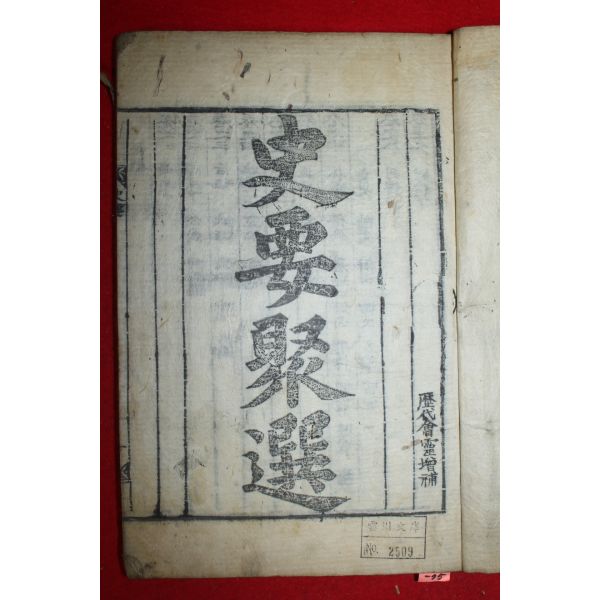 史要聚選
歷代會靈增補
雲川文庫
No. 2509
-95